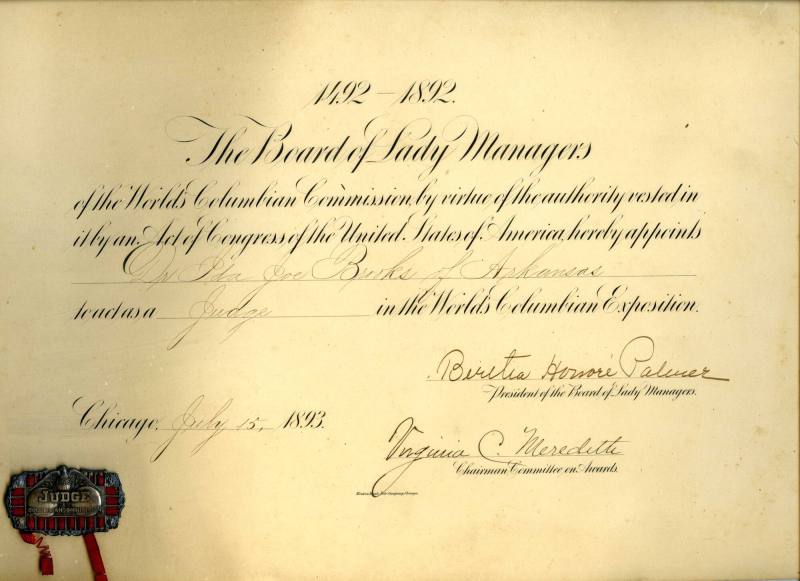 1492 – 1892.
The Board of Lady Managers
of the World's Columbian Commission, by virtue of the authority vested in
it by an Act of Congress of the United States of America, hereby appoints
Dr Ida Joe Brooks of Arkansas
to act as a Judge in the World's Columbian Exposition.
Bertha Honoré Palmer
President of the Board of Lady Managers.
Chicago, July 15, 1893.
Virginia C. Meredith
Chairman Committee on Awards.
JUDGE